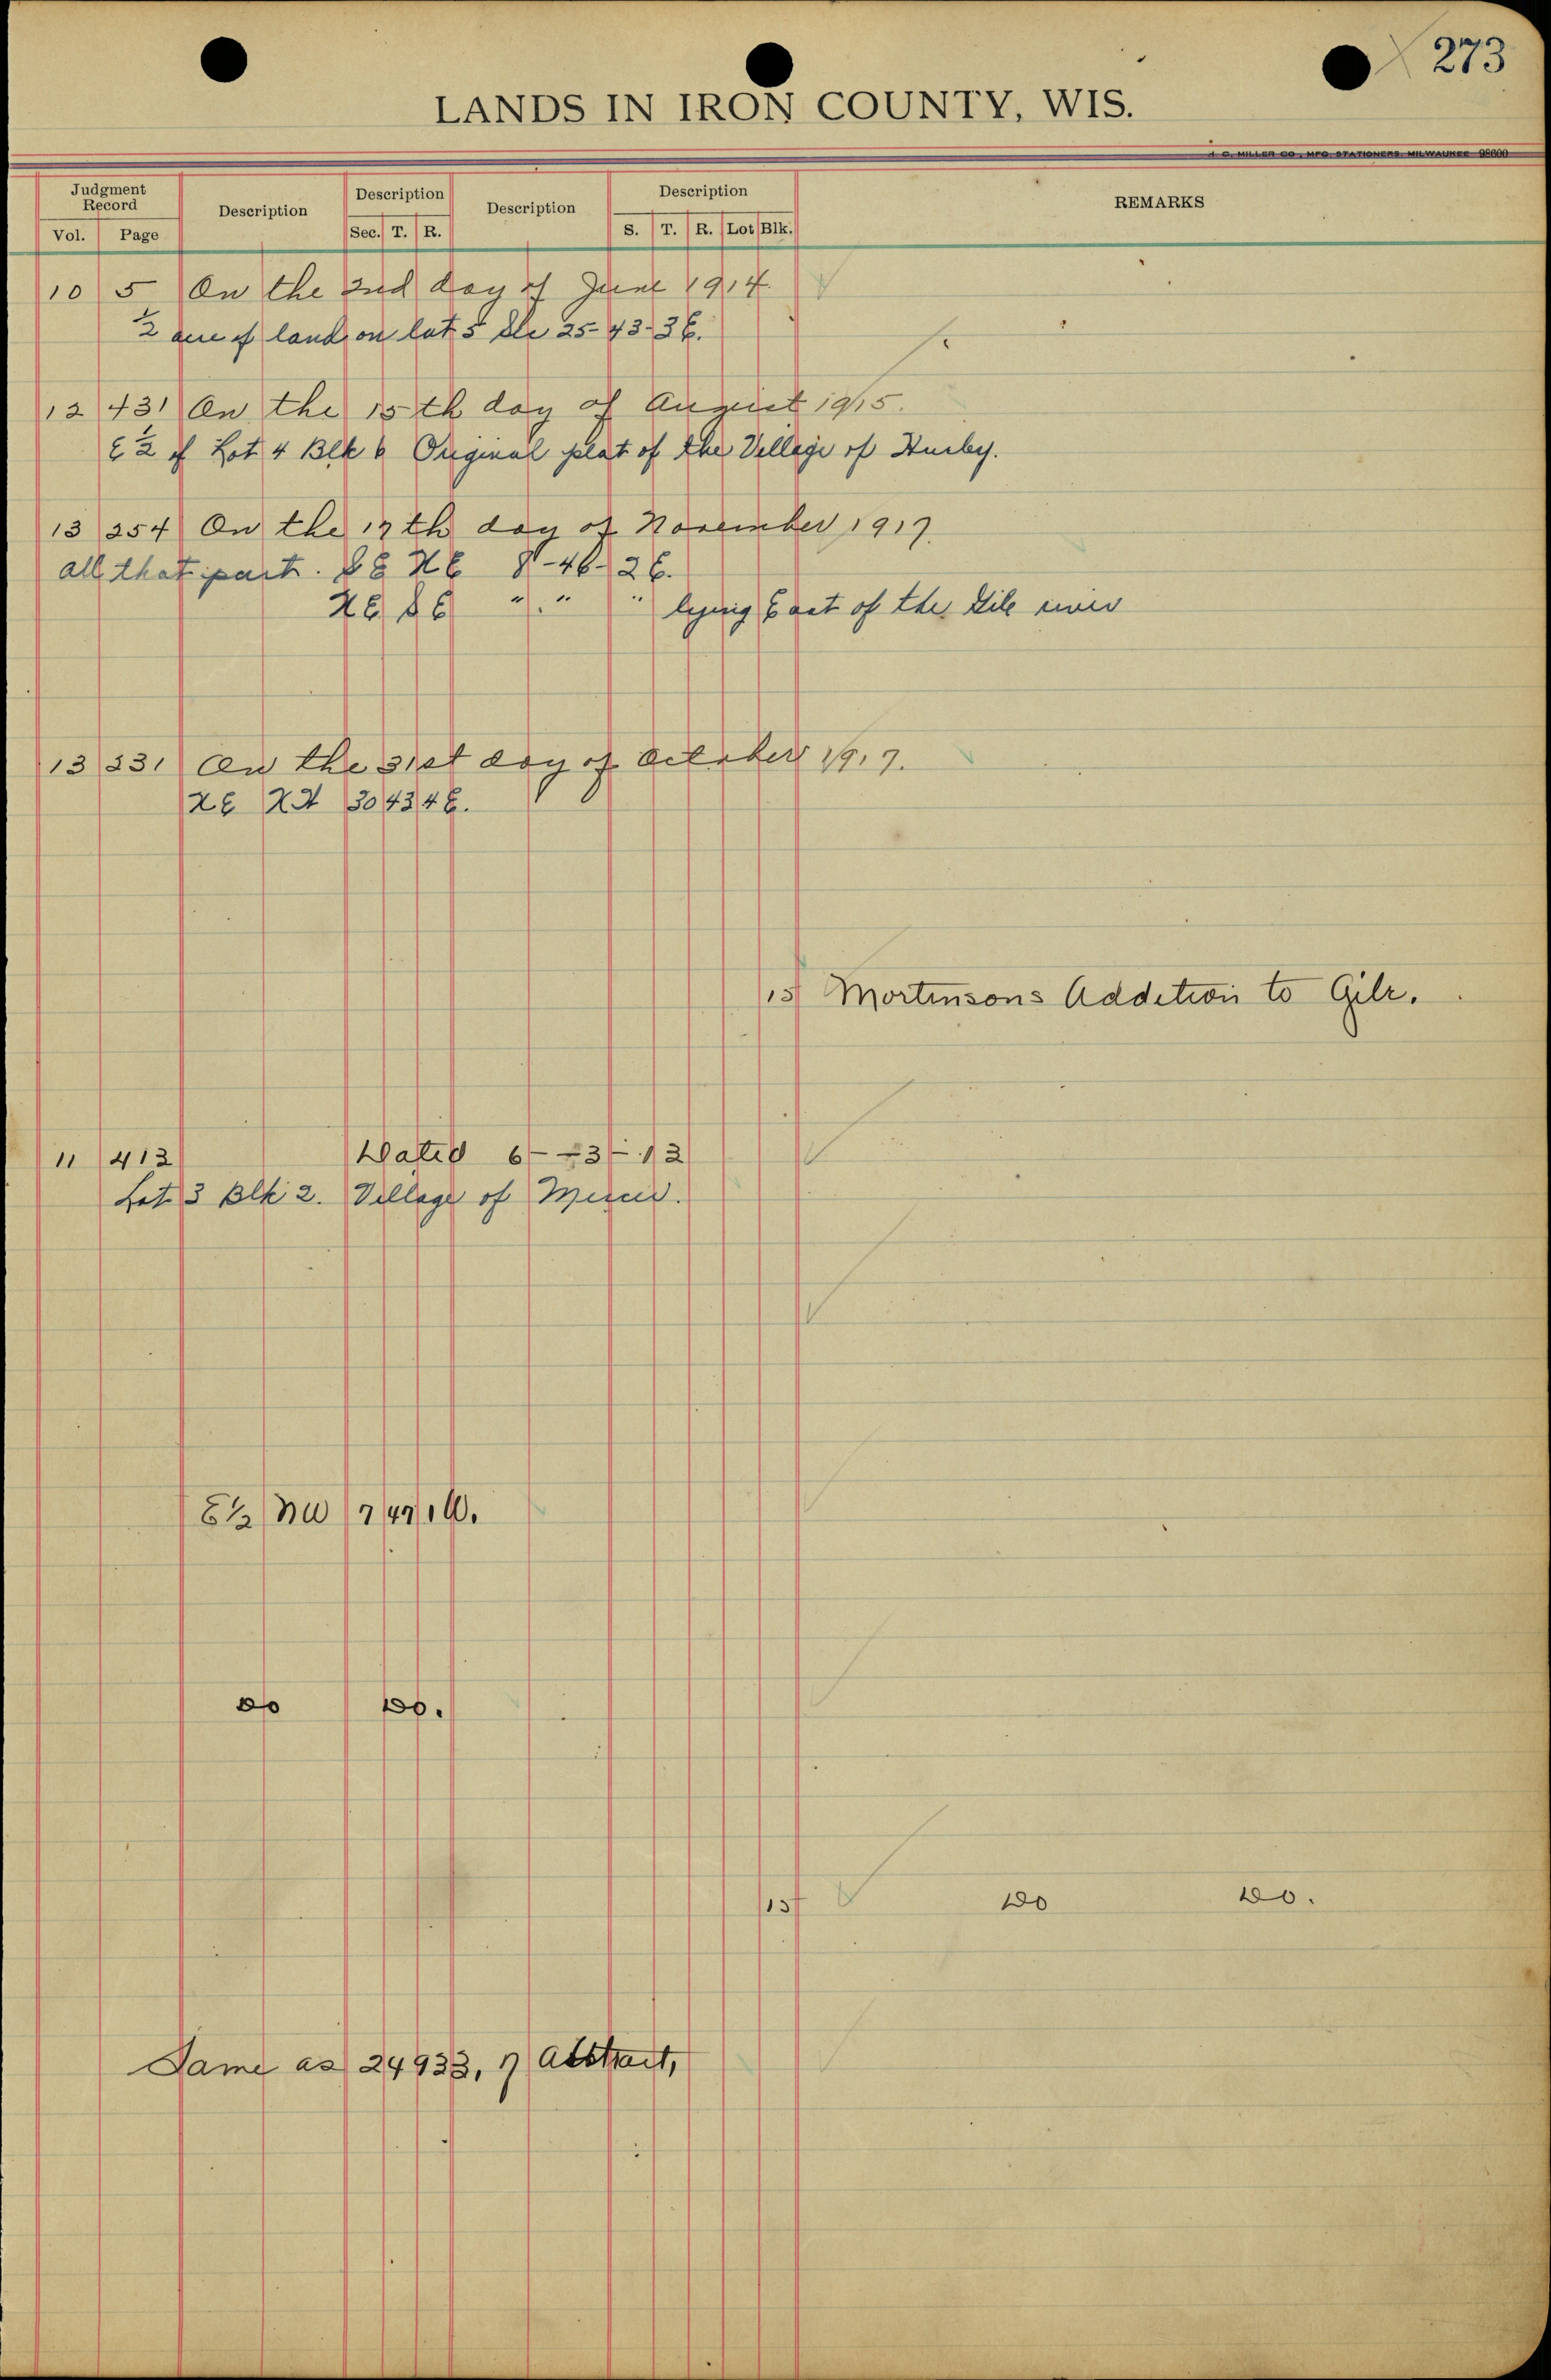 273
LANDS IN IRON COUNTY, WIS.
H. C. MILLER CO., MFG. STATIONERS, MILWAUKEE 98600
Judgment Record Description Description Description Description REMARKS
Vol. Page Sec. T. R. S. T. R. Lot Blk.
10 5 On the 2nd day of June 1914
½ acre of land on lot 5 Sec 25-43-3E.
12 431 On the 15th day of August 1915.
E½ of Lot 4 Blk 6 Original plat of the Village of Hurley.
13 254 On the 17th day of November 1917.
all that part. SE NE 8-46-2E.
NE SE " . " " lying East of the Gile river
13 231 On the 31st day of October 1917.
NE NW 30 43 4E.
15 Mortinsons Addition to Gile.
11 412 Dated 6-23-12
Lot 3 Blk 2. Village of Mercer.
E½ NW 7 47 1W.
Do Do.
15 Do Do.
Same as 24933, 7 Abstract,